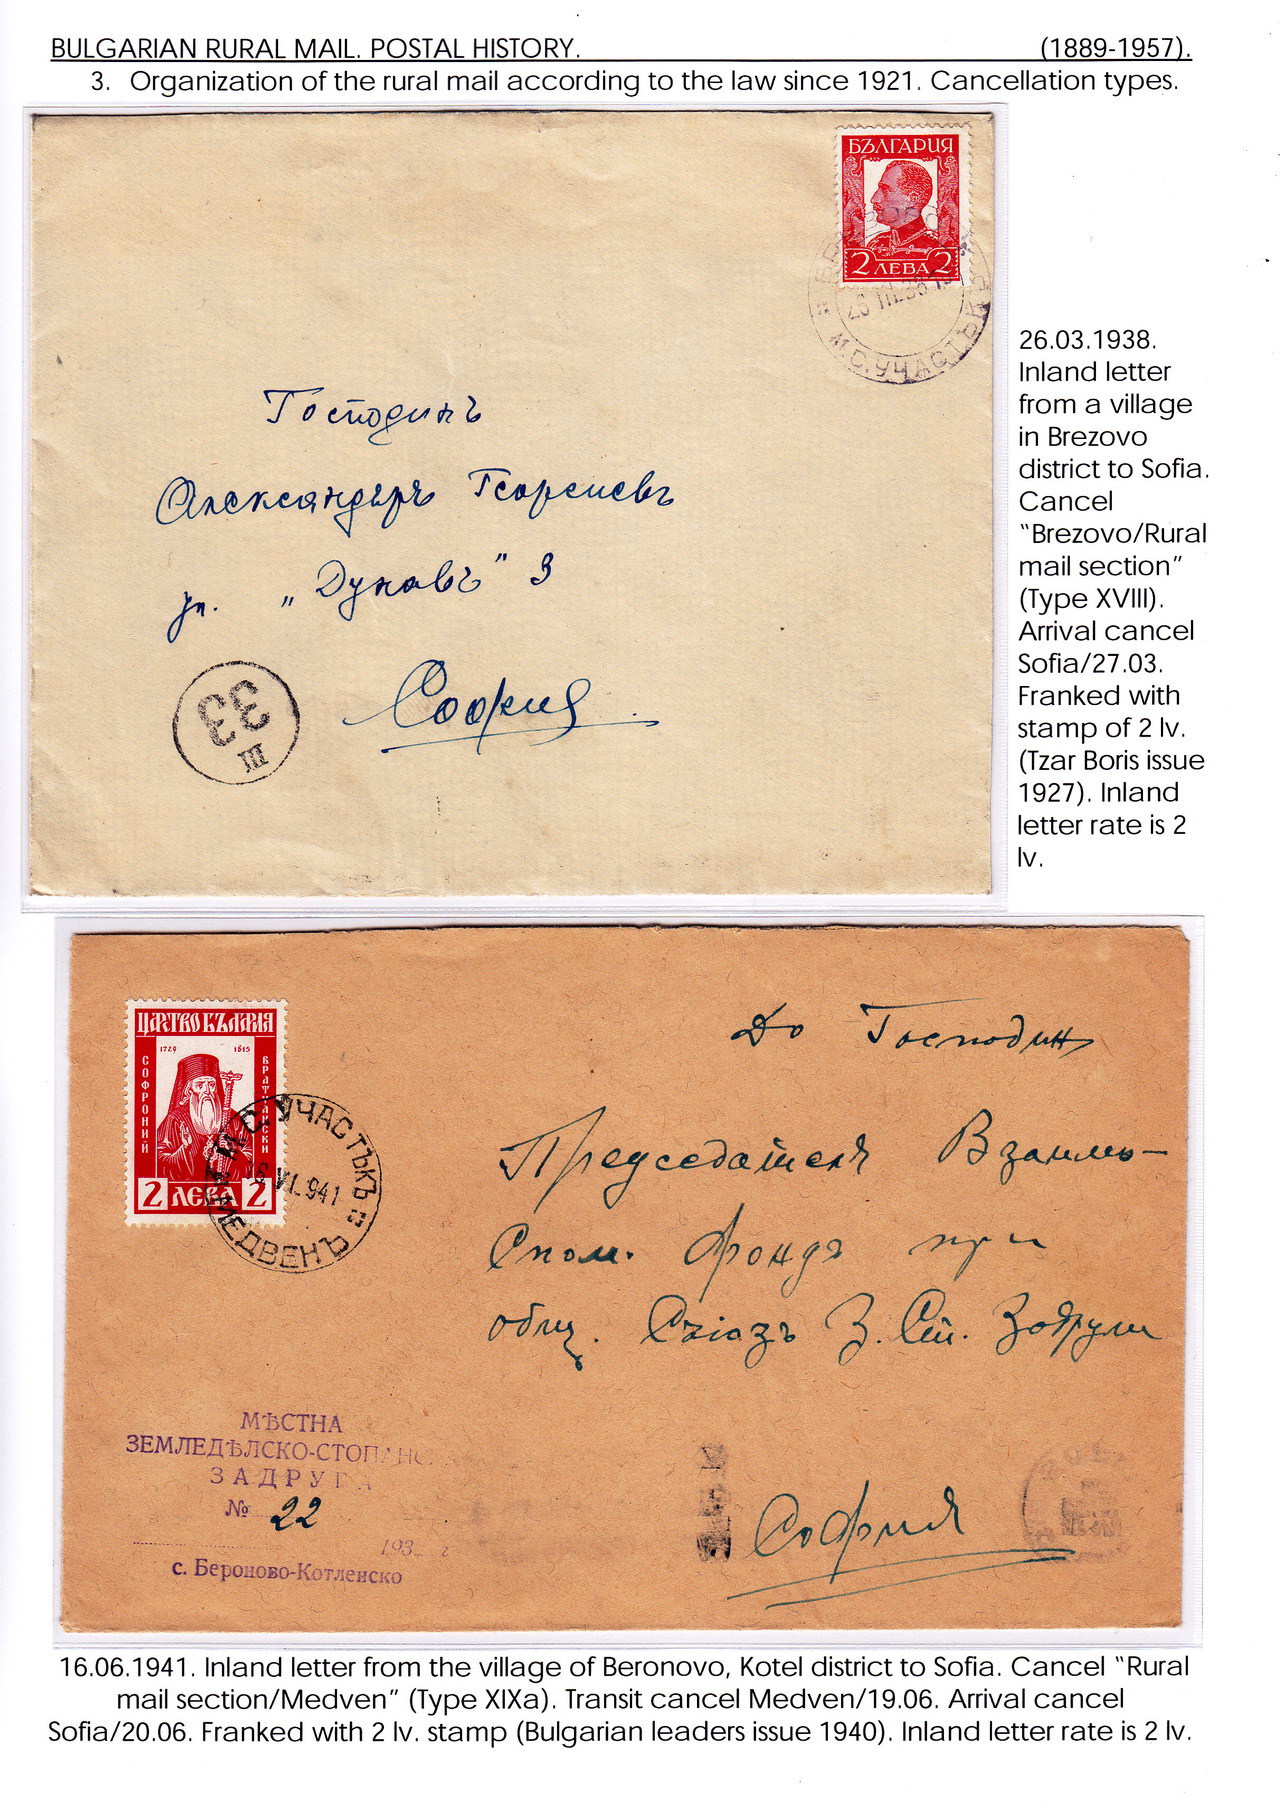 BULGARIAN RURAL MAIL. POSTAL HISTORY. (1889-1957).
3. Organization of the rural mail according to the law since 1921. Cancellation types.
БЪЛГАРИЯ
2 ЛЕВА 2
26 III.38
М.С.УЧАСТЪКЪ
Господинъ
Александъръ Георгиевъ
ул. „Дунавъ" 3
София
33
III
26.03.1938.
Inland letter
from a village
in Brezovo
district to Sofia.
Cancel
"Brezovo/Rural
mail section"
(Type XVIII).
Arrival cancel
Sofia/27.03.
Franked with
stamp of 2 lv.
(Tzar Boris issue
1927). Inland
letter rate is 2
lv.
ЦАРСТВО БЪЛГАРИЯ
1739 1815
СОФРОНИЙ ВРАЧАНСКИ
2 ЛЕВА 2
М.С.УЧАСТЪКЪ
VI.941
МЕДВЕНЪ
До Господин
Председателя Взаимо-
Спом. Фондъ при
общ. Съюзъ З. Ст. Задруги
София
МѢСТНА
ЗЕМЛЕДѢЛСКО-СТОПАНС
ЗАДРУГА
№ 22
193 г
с. Бероново-Котленско
16.06.1941. Inland letter from the village of Beronovo, Kotel district to Sofia. Cancel "Rural
mail section/Medven" (Type XIXa). Transit cancel Medven/19.06. Arrival cancel
Sofia/20.06. Franked with 2 lv. stamp (Bulgarian leaders issue 1940). Inland letter rate is 2 lv.